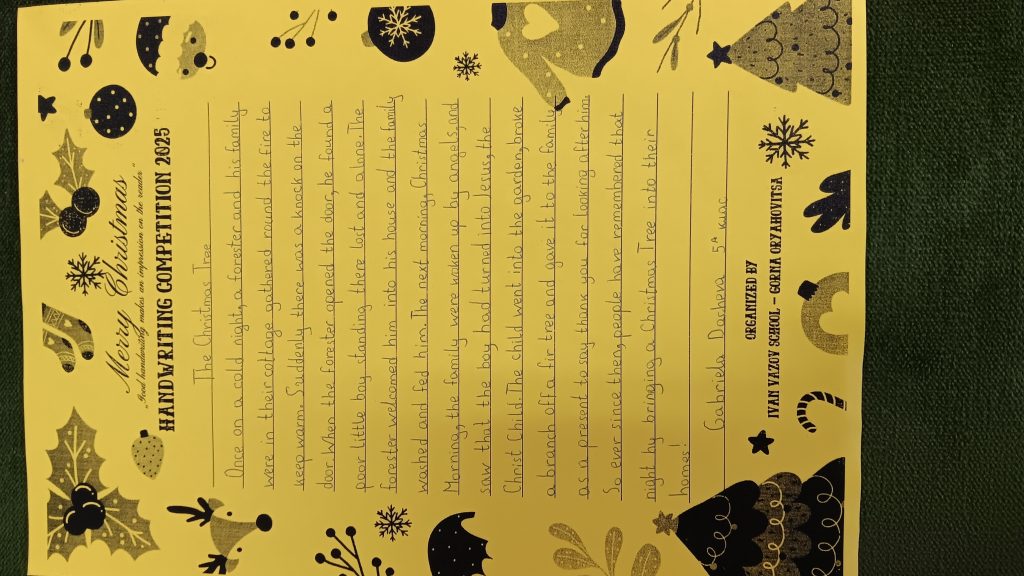 Merry Christmas
„Good handwriting makes an impression on the reader“
HANDWRITING COMPETITION 2025
The Christmas Tree
Once on a cold night, a forester and his family
were in their cottage gathered round the fire to
keep warm. Suddenly there was a knock on the
door. When the forester opened the door, he found a
poor little boy standing there lost and alone. The
forester welcomed him into his house and the family
washed and fed him. The next morning, Christmas
Morning, the family were woken up by angels, and
saw that the boy had turned into Jesus, the
Christ Child. The child went into the garden, broke
a branch off a fir tree and gave it to the family
as a present to say thank you for looking after him.
So ever since then, people have remembered that
night by bringing a Christmas Tree into their
homes!
Gabriela Dasheva 5ᴬ клас
ORGANIZED BY
IVAN VAZOV SCHOOL – GORNA ORYAHOVITSA